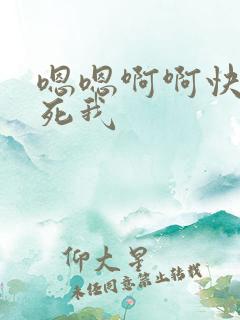 嗯嗯啊啊快
死我
仰大星
未经同意禁止转载